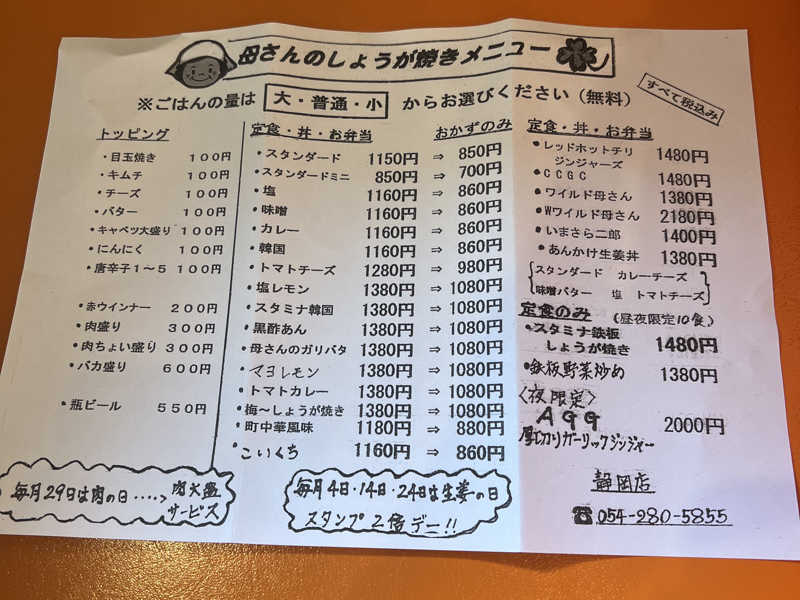 母さんのしょうが焼きメニュー
※ごはんの量は 大・普通・小 からお選びください（無料）
すべて税込み
トッピング
・目玉焼き 100円
・キムチ 100円
・チーズ 100円
・バター 100円
・キャベツ大盛り 100円
・にんにく 100円
・唐辛子1～5 100円
・赤ウインナー 200円
・肉盛り 300円
・肉ちょい盛り 300円
・バカ盛り 600円
・瓶ビール 550円
定食・丼・お弁当 おかずのみ
・スタンダード 1150円 ⇒ 850円
・スタンダードミニ 850円 ⇒ 700円
・塩 1160円 ⇒ 860円
・味噌 1160円 ⇒ 860円
・カレー 1160円 ⇒ 860円
・韓国 1160円 ⇒ 860円
・トマトチーズ 1280円 ⇒ 980円
・塩レモン 1380円 ⇒ 1080円
・スタミナ韓国 1380円 ⇒ 1080円
・黒酢あん 1380円 ⇒ 1080円
・母さんのガリバタ 1380円 ⇒ 1080円
・マヨレモン 1380円 ⇒ 1080円
・トマトカレー 1380円 ⇒ 1080円
・梅～しょうが焼き 1380円 ⇒ 1080円
・町中華風味 1180円 ⇒ 880円
・こいくち 1160円 ⇒ 860円
定食・丼・お弁当
・レッドホットチリ
ジンジャーズ 1480円
・CCGC 1480円
・ワイルド母さん 1380円
・Wワイルド母さん 2180円
・いまさら二郎 1400円
・あんかけ生姜丼 1380円
スタンダード カレーチーズ
味噌バター 塩 トマトチーズ
定食のみ （昼夜限定10食）
・スタミナ鉄板
しょうが焼き 1480円
・鉄板野菜炒め 1380円
〈夜限定〉
AGG
厚切りガーリックジンジャー 2000円
静岡店
☎054-280-5855
毎月29日は肉の日‥‥> 肉大盛
サービス
毎月4日・14日・24日は生姜の日
スタンプ2倍デー!!